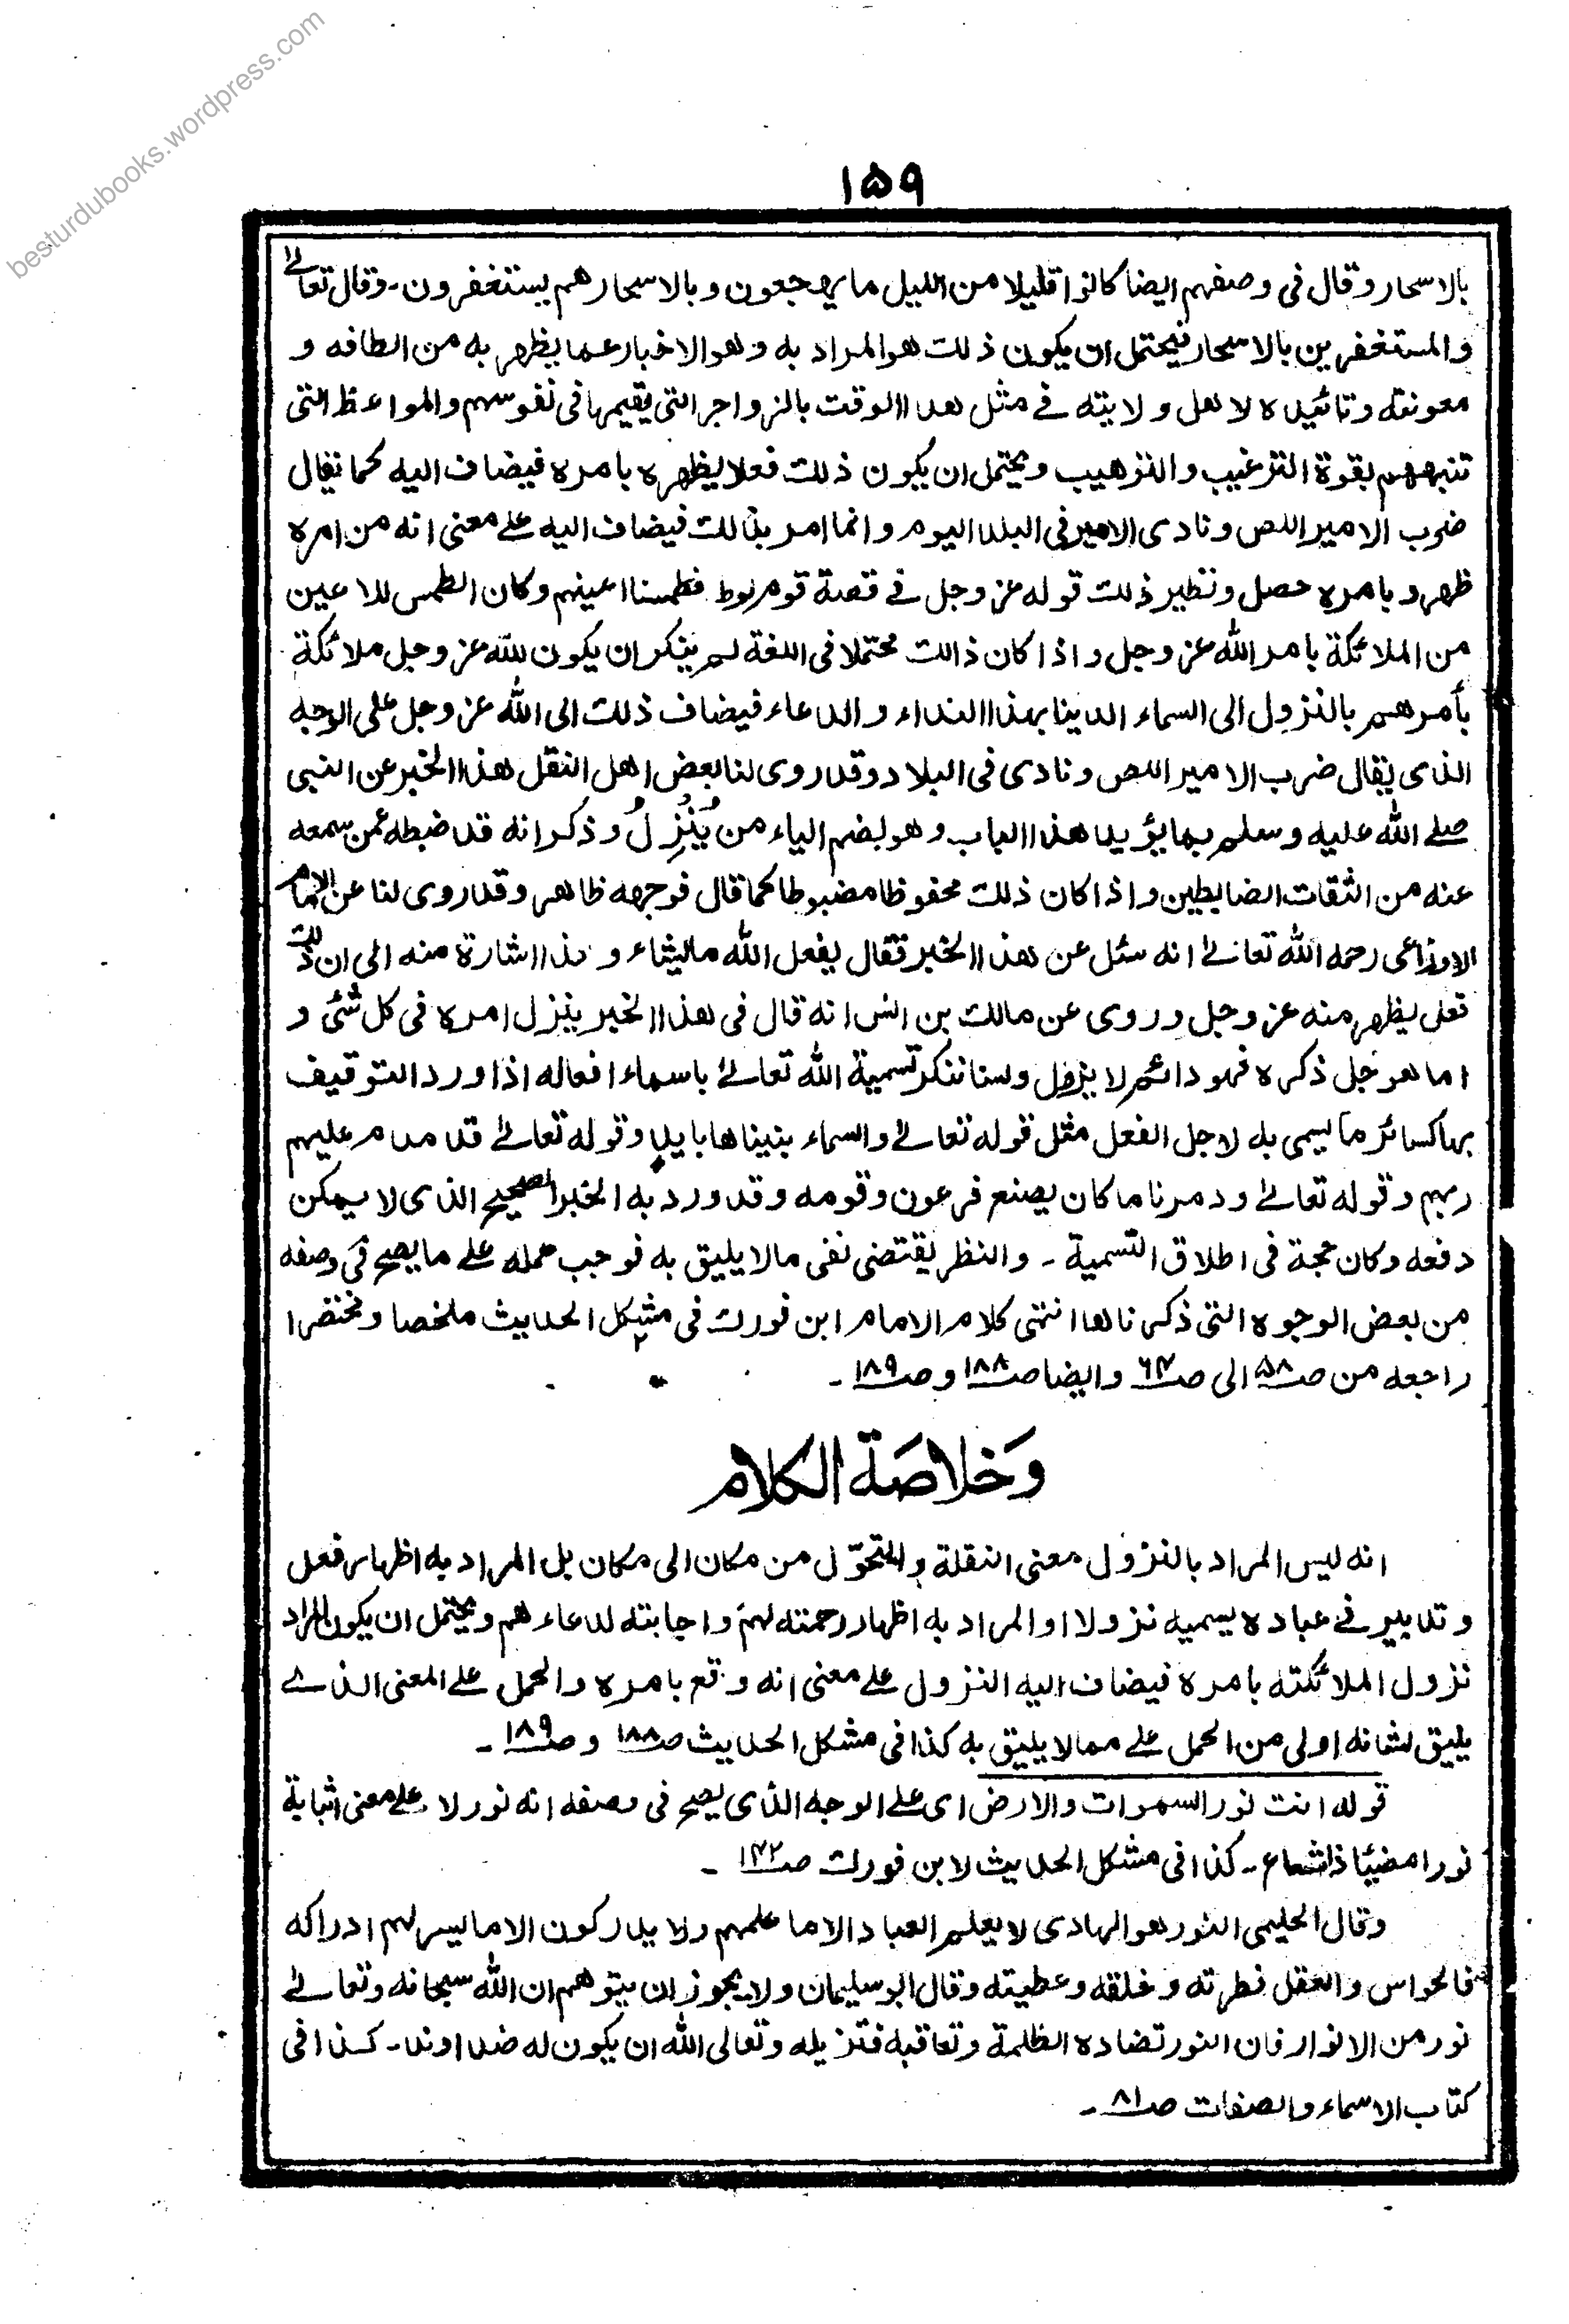 besturdubooks.wordpress.com
۱۵۹
بالاسحار وقال فی وصفهم ایضا کانوا قلیلا من اللیل ما یهجعون وبالاسحار هم یستغفرون ـ وقال تعالےٰ
والمستغفرین بالاسحار فیحتمل ان یکون ذلک هو المراد به وهو الاخبار عما یظهر به من الطافه و
معونته وتائیده لاهل ولایته فے مثل هذا الوقت بالزواجر التی یقیمها فی نفوسهم والمواعظ التی
تنبههم بقوة الترغیب والترهیب ویحتمل ان یکون ذلک فعلا یظهره بامره فیضاف الیه کما یقال
ضرب الامیر اللص ونادی الامیر فی البلد الیوم وانما امر بذالک فیضاف الیه علے معنی انه من امره
ظهر وبامره حصل ونظیر ذلک قوله عز وجل فے قصة قوم لوط فطمسنا اعینهم وکان الطمس للاعین
من الملائکة بامر الله عز وجل واذا کان ذالک محتملا فی اللغة لم ینکر ان یکون لله عز وجل ملائکة
یأمرهم بالنزول الی السماء الدینا بهذا النداء والدعاء فیضاف ذلک الی الله عز وجل علی الوجه
الذی یقال ضرب الامیر اللص ونادی فی البلاد وقد روی لنا بعض اهل النقل هذا الخبر عن النبی
صلے الله علیه وسلم بما یؤید هذا الباب وهو بضم الیاء من یُنْزِلُ وذکر انه قد ضبطه عمن سمعه
عنه من الثقات الضابطین واذا کان ذلک محفوظا مضبوطا کما قال فوجهه ظاهر وقد روی لنا عن الامام
الاوزاعی رحمه الله تعالےٰ انه سئل عن هذا الخبر فقال یفعل الله ما یشاء وهذا اشارة منه الی ان ذلک
فعل یظهر منه عز وجل وروی عن مالک بن انس انه قال فی هذا الخبر ینزل امره فی کل شئی و
اما هو جل ذکره فهو دائم لا یزول ولسنا ننکر تسمیة الله تعالےٰ باسماء افعاله اذا ورد التوقیف
بها کسائر ما یسمی به لاجل الفعل مثل قوله تعالےٰ والسماء بنیناها باید وقوله تعالےٰ فدمدم علیهم
ربهم وقوله تعالےٰ ودمرنا ما کان یصنع فرعون وقومه وقد ورد به الخبر الصحیح الذی لا یمکن
دفعه وکان حجة فی اطلاق التسمیة ـ والنظر یقتضی نفی ما لا یلیق به فوجب حمله علے ما یصح فی وصفه
من بعض الوجوه التی ذکرناها انتهی کلام الامام ابن فورک فی مشکل الحدیث ملخصا ومختصرا
راجعه من صـ۵۸ الی صـ۶۴ وایضا صـ۱۸۸ وصـ۱۸۹ ـ
وَخلاصَة الکلام
انه لیس المراد بالنزول معنی النقلة والتحوّل من مکان الی مکان بل المراد به اظهار فعل
وتدبیر فے عباده یسمیه نزولا او المراد به اظهار رحمته لهم واجابته لدعاءهم ویحتمل ان یکون المراد
نزول الملائکته بامره فیضاف الیه النزول علے معنی انه وقع بامره والحمل علے المعنی الذے
یلیق لشانه اولی من الحمل علے ممالا یلیق به کذا فی مشکل الحدیث صـ۱۸۸ و صـ۱۸۹ ـ
قوله انت نور السموات والارض ای علے الوجه الذی یصح فی وصفه انه نور لا علے معنی اثبابة
نورا مضیئا ذاشعاع ـ کذا فی مشکل الحدیث لابن فورک صـ۱۴۲ ـ
وقال الحلیمی النور هو الهادی لا یعلم العباد الا ما علمهم ولا یدرکون الا ما یسر لهم ادراکه
فالحواس والعقل فطرته وخلقه وعطیته وقال ابو سلیمان ولا یجوز ان یتوهم ان الله سبحانه وتعالےٰ
نور من الانوار فان النور تضاده الظلمة وتعاقبه فتزیله وتعالی الله ان یکون له ضد او ند ـ کذا فی
کتاب الاسماء والصفات صـ۸۱ ـ